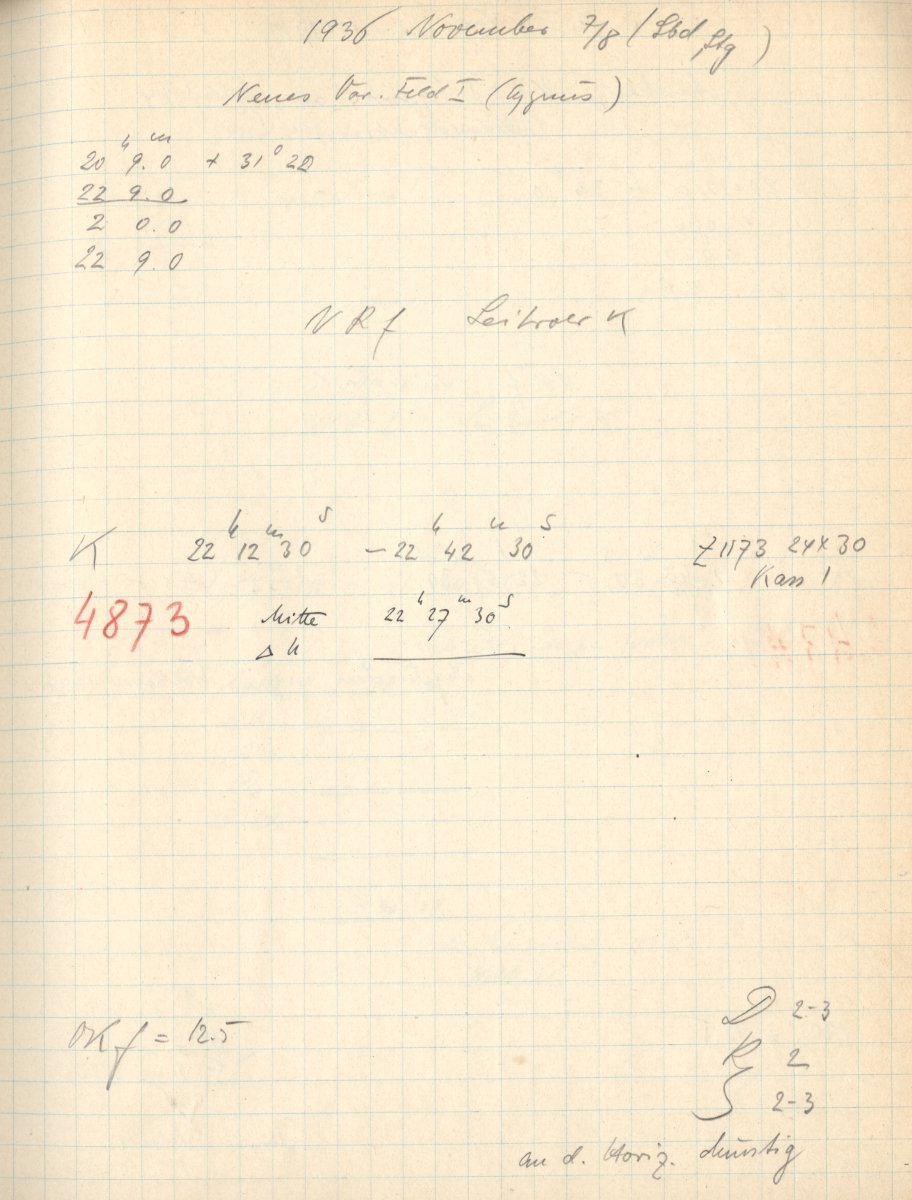 1936 November 7/8 (Sbd, Stg)
Neues Var. Feld I (Cygnus)
20ʰ 9.0ᵐ + 31° 20
22 9.0
2 0.0
22 9.0
N R f Leitrohr K
K 22ʰ 12ᵐ 30ˢ – 22ʰ 42ᵐ 30ˢ Z1173 24x30
Kass 1
4873 Mitte 22ʰ 27ᵐ 30ˢ
Δ
OKf = 12.5
D 2-3
R 2
S 2-3
an d. Horiz. dunstig